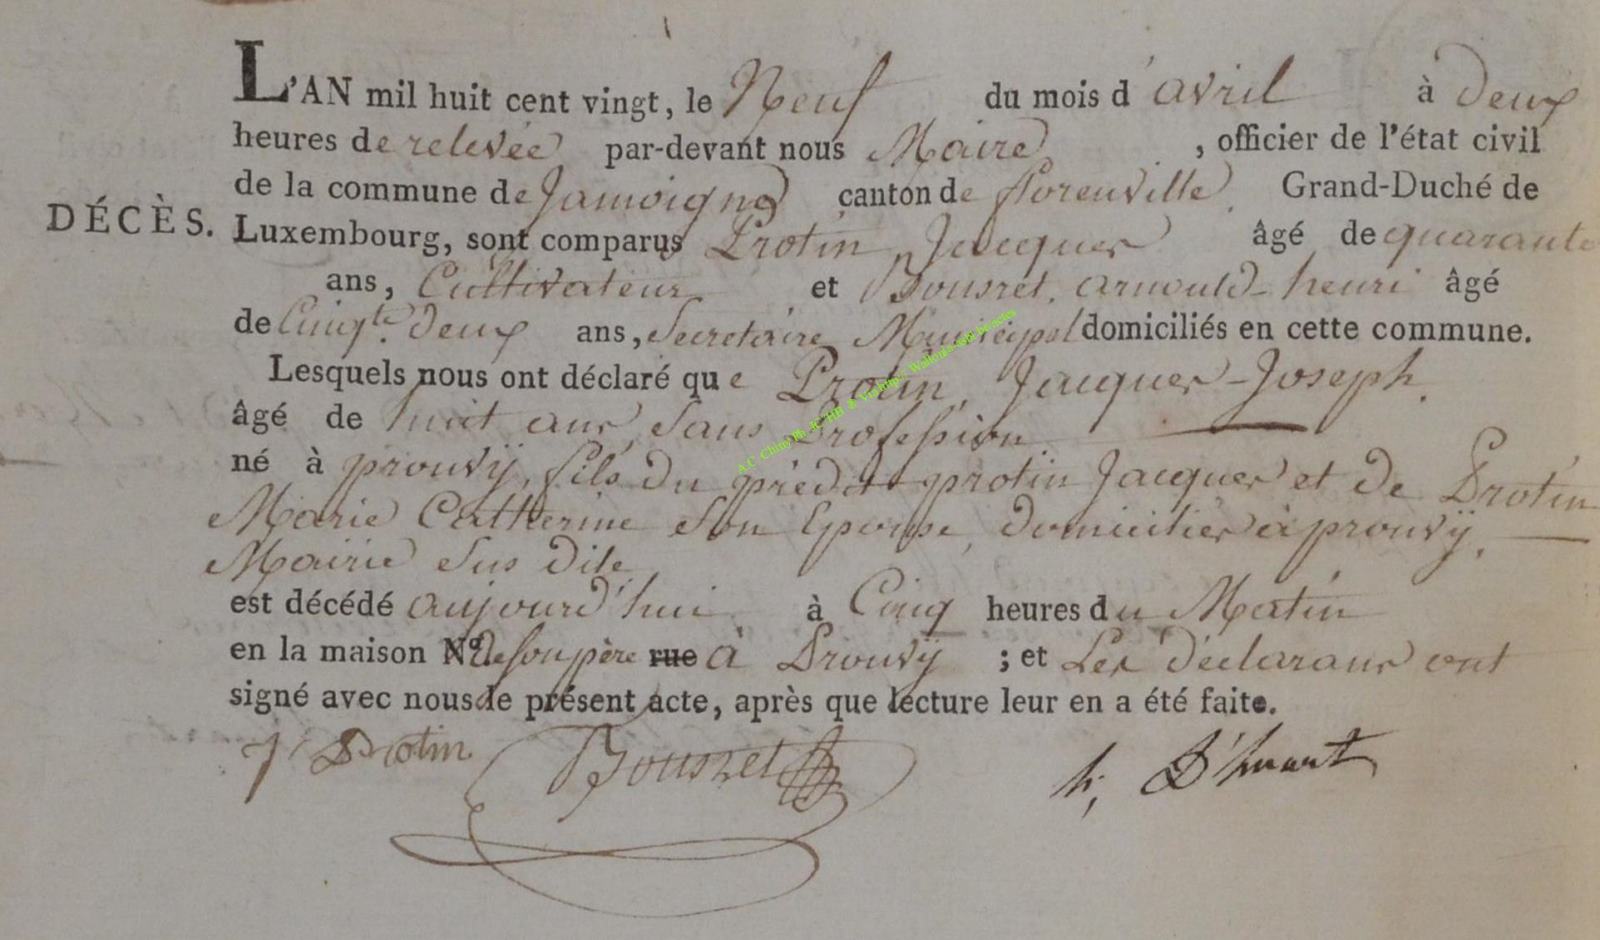 L'AN mil huit cent vingt, le Neuf du mois d'avril à deux
heures de relevée par-devant nous Maire, officier de l'état civil
de la commune de Jamoigne canton de florenville. Grand-Duché de
DÉCÈS. Luxembourg, sont comparus Protin Jacques âgé de quarante
ans, Cultivateur et Bousret, arnould-henri âgé
de Cinqte deux ans, Secretaire Municipal domiciliés en cette commune.
Lesquels nous ont déclaré que Protin, Jacques-Joseph.
âgé de huit ans, sans Profession
né à prouvÿ, fils du prédit protin Jacques et de Protin
Marie Catherine son Epouse, domiciliés à prouvÿ,
Mairie sus dite
est décédé aujourd'hui à Cinq heures du Matin
en la maison N° de son père rue à Prouvÿ ; et Les déclarans ont
signé avec nous le présent acte, après que lecture leur en a été faite.
J Protin Bousret h, D'huart